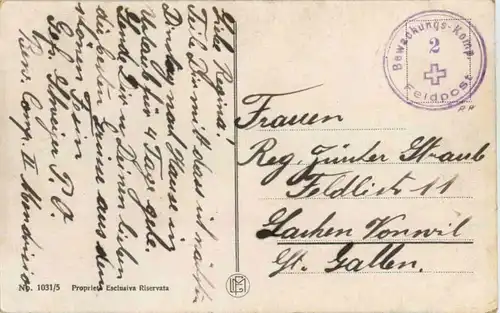 Liebe Regina!
Teile Dir mit dass ich nächsten
Dinstag nach Hause in
Urlaub für 4 Tage gehe.
Sende Dir u. Deinen lieben
die besten Grüsse aus dem
schönen
Bew. Comp. II Mendrisio
Bewachungs-Komp.
2
Feldpost
Frauen
Reg. Günter Straub
Feldlistr. 11
Lachen Vonwil
St. Gallen.
No. 1031/5 Proprietà Esclusiva Riservata